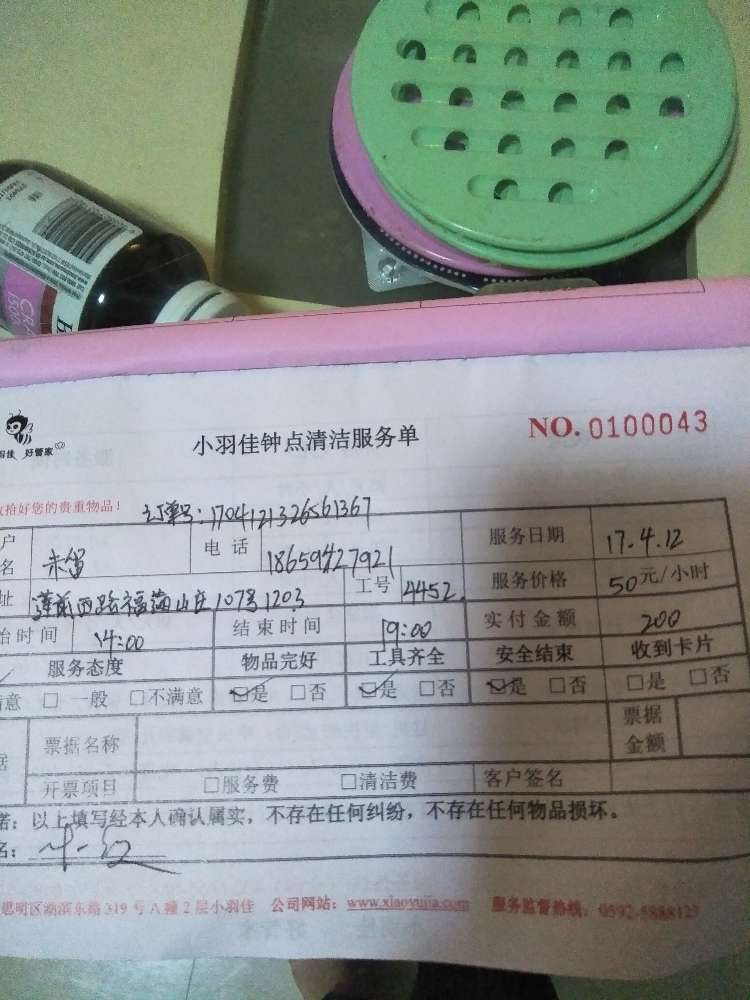 好管家
小羽佳钟点清洁服务单
NO. 0100043
收拾好您的贵重物品!
订单号:1704121326561367
户名
电话
18659427921
服务日期
17.4.12
址
莲前西路福满山庄107号1203
工号
4452
服务价格
50元/小时
始时间
14:00
结束时间
19:00
实付金额
200
服务态度
物品完好
工具齐全
安全结束
收到卡片
意 □ 一般 □不满意
☑是 □否
☑是 □否
☑是 □否
□是 □否
据
票据名称
票据金额
开票项目
□服务费 □清洁费
客户签名
诺:以上填写经本人确认属实,不存在任何纠纷,不存在任何物品损坏。
名:
思明区湖滨东路319号A幢2层小羽佳 公司网站:www.xiaoyujia.com 服务监督热线:0592-5888123